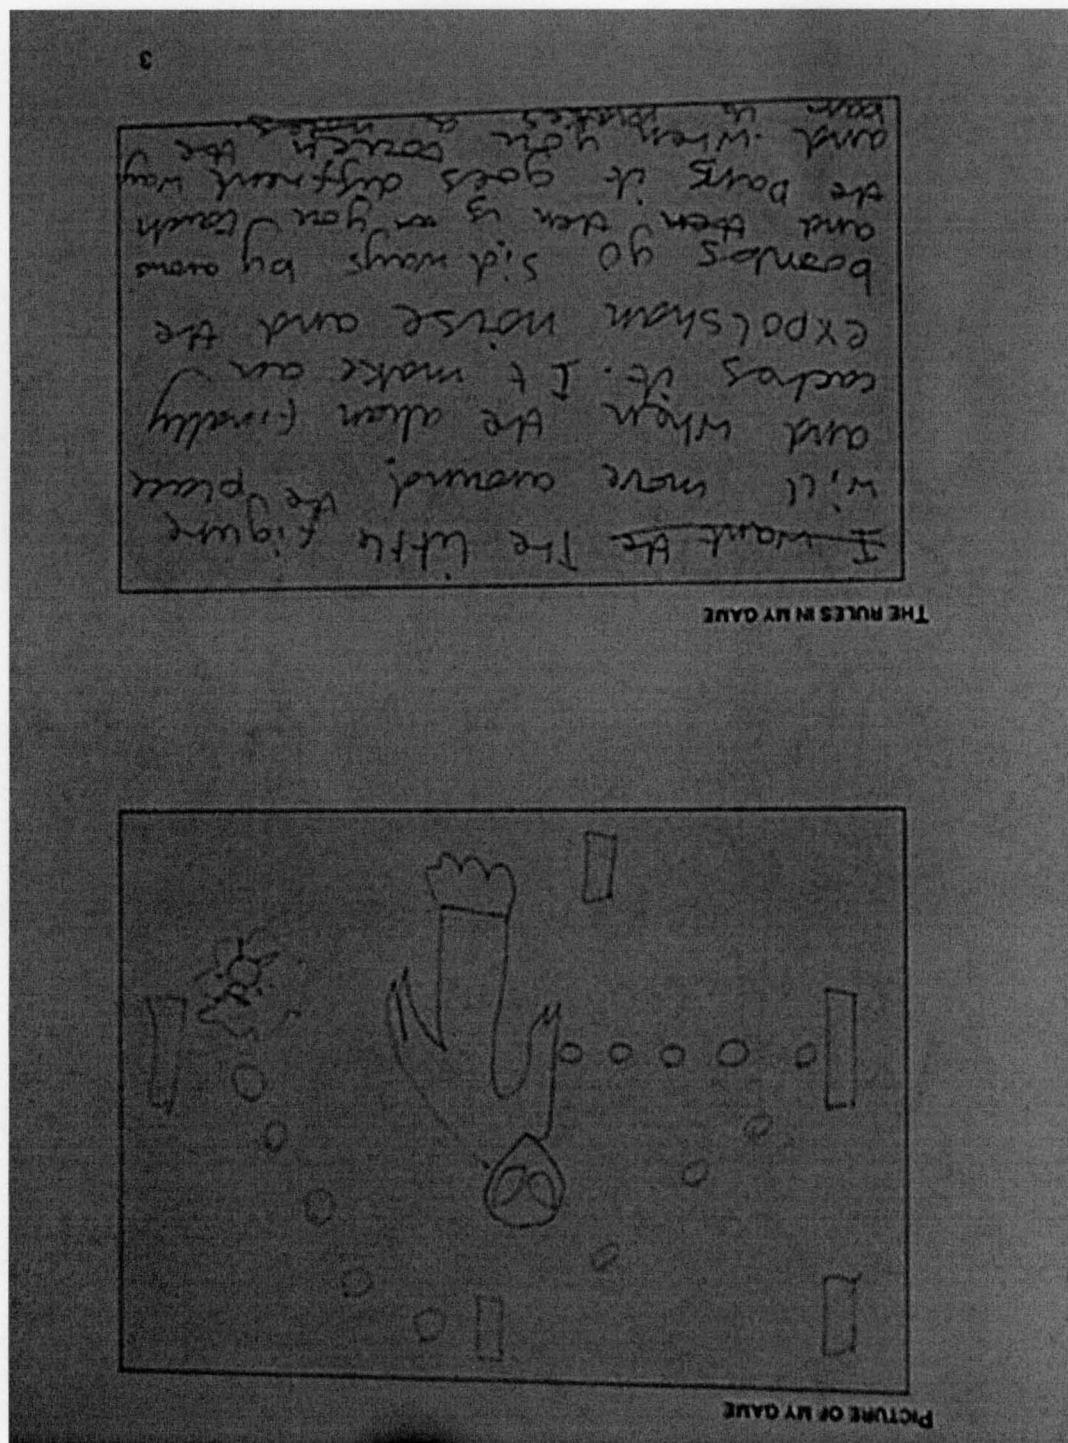 PICTURE OF MY GAME
THE RULES IN MY GAME
I want the The little figure
will move around. the place
and when the alien finally
caches it. It make an
expolshan noise and the
boombos go sid ways by arons
and then then is an you touch
the bang it goes diffrent way
and when you touch the
bar is makes a noies
3